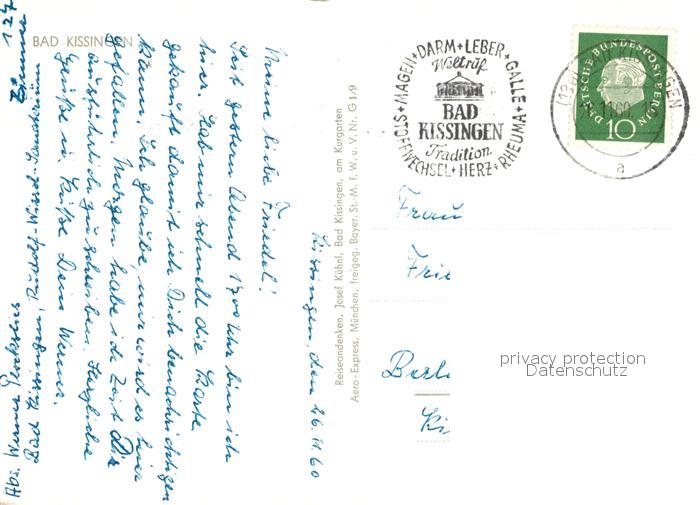 BAD KISSINGEN
Kissingen, den 26.11.60
Meine liebe Friedel!
Seit gestern Abend 17 00 Uhr bin ich
hier. Hab mir schnell die Karte
gekauft damit ich Dich benachrichtigen
kann. Ich glaube, mir wird es hier
gefallen. Morgen habe ich Zeit Dir
ausführlich zu schreiben. Herzliche
Grüße u. Küße Dein Werner.
Abs. Werner
Bad Kissingen, Rudolf-Wissel-Sanatorium
Zimmer 127
Reiseandenken, Josef Kühnl, Bad Kissingen, am Kurgarten
Aero-Express, München, freigeg. Bayer. St. M. f. W. u. V. Nr. G 1/9
MAGEN+DARM+LEBER+GALLE+RHEUMA+HERZ+STOFFWECHSEL+
Weltruf
BAD
KISSINGEN
Tradition
DEUTSCHE BUNDESPOST BERLIN
10
KISSINGEN
11.60
a
Frau
Frie
Berl
Ki
privacy protection
Datenschutz